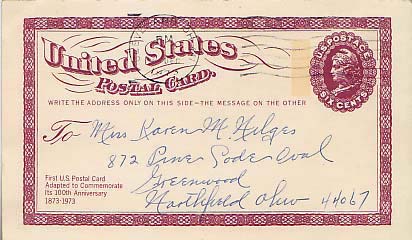 PM
United States
Postal Card.
U.S. POSTAGE
SIX CENTS
WRITE THE ADDRESS ONLY ON THIS SIDE–THE MESSAGE ON THE OTHER
To Miss Karen M. Hilges
872 Pine Lode Oval
Greenwood
Northfield Ohio 44067
First U.S. Postal Card
Adapted to Commemorate
Its 100th Anniversary
1873-1973